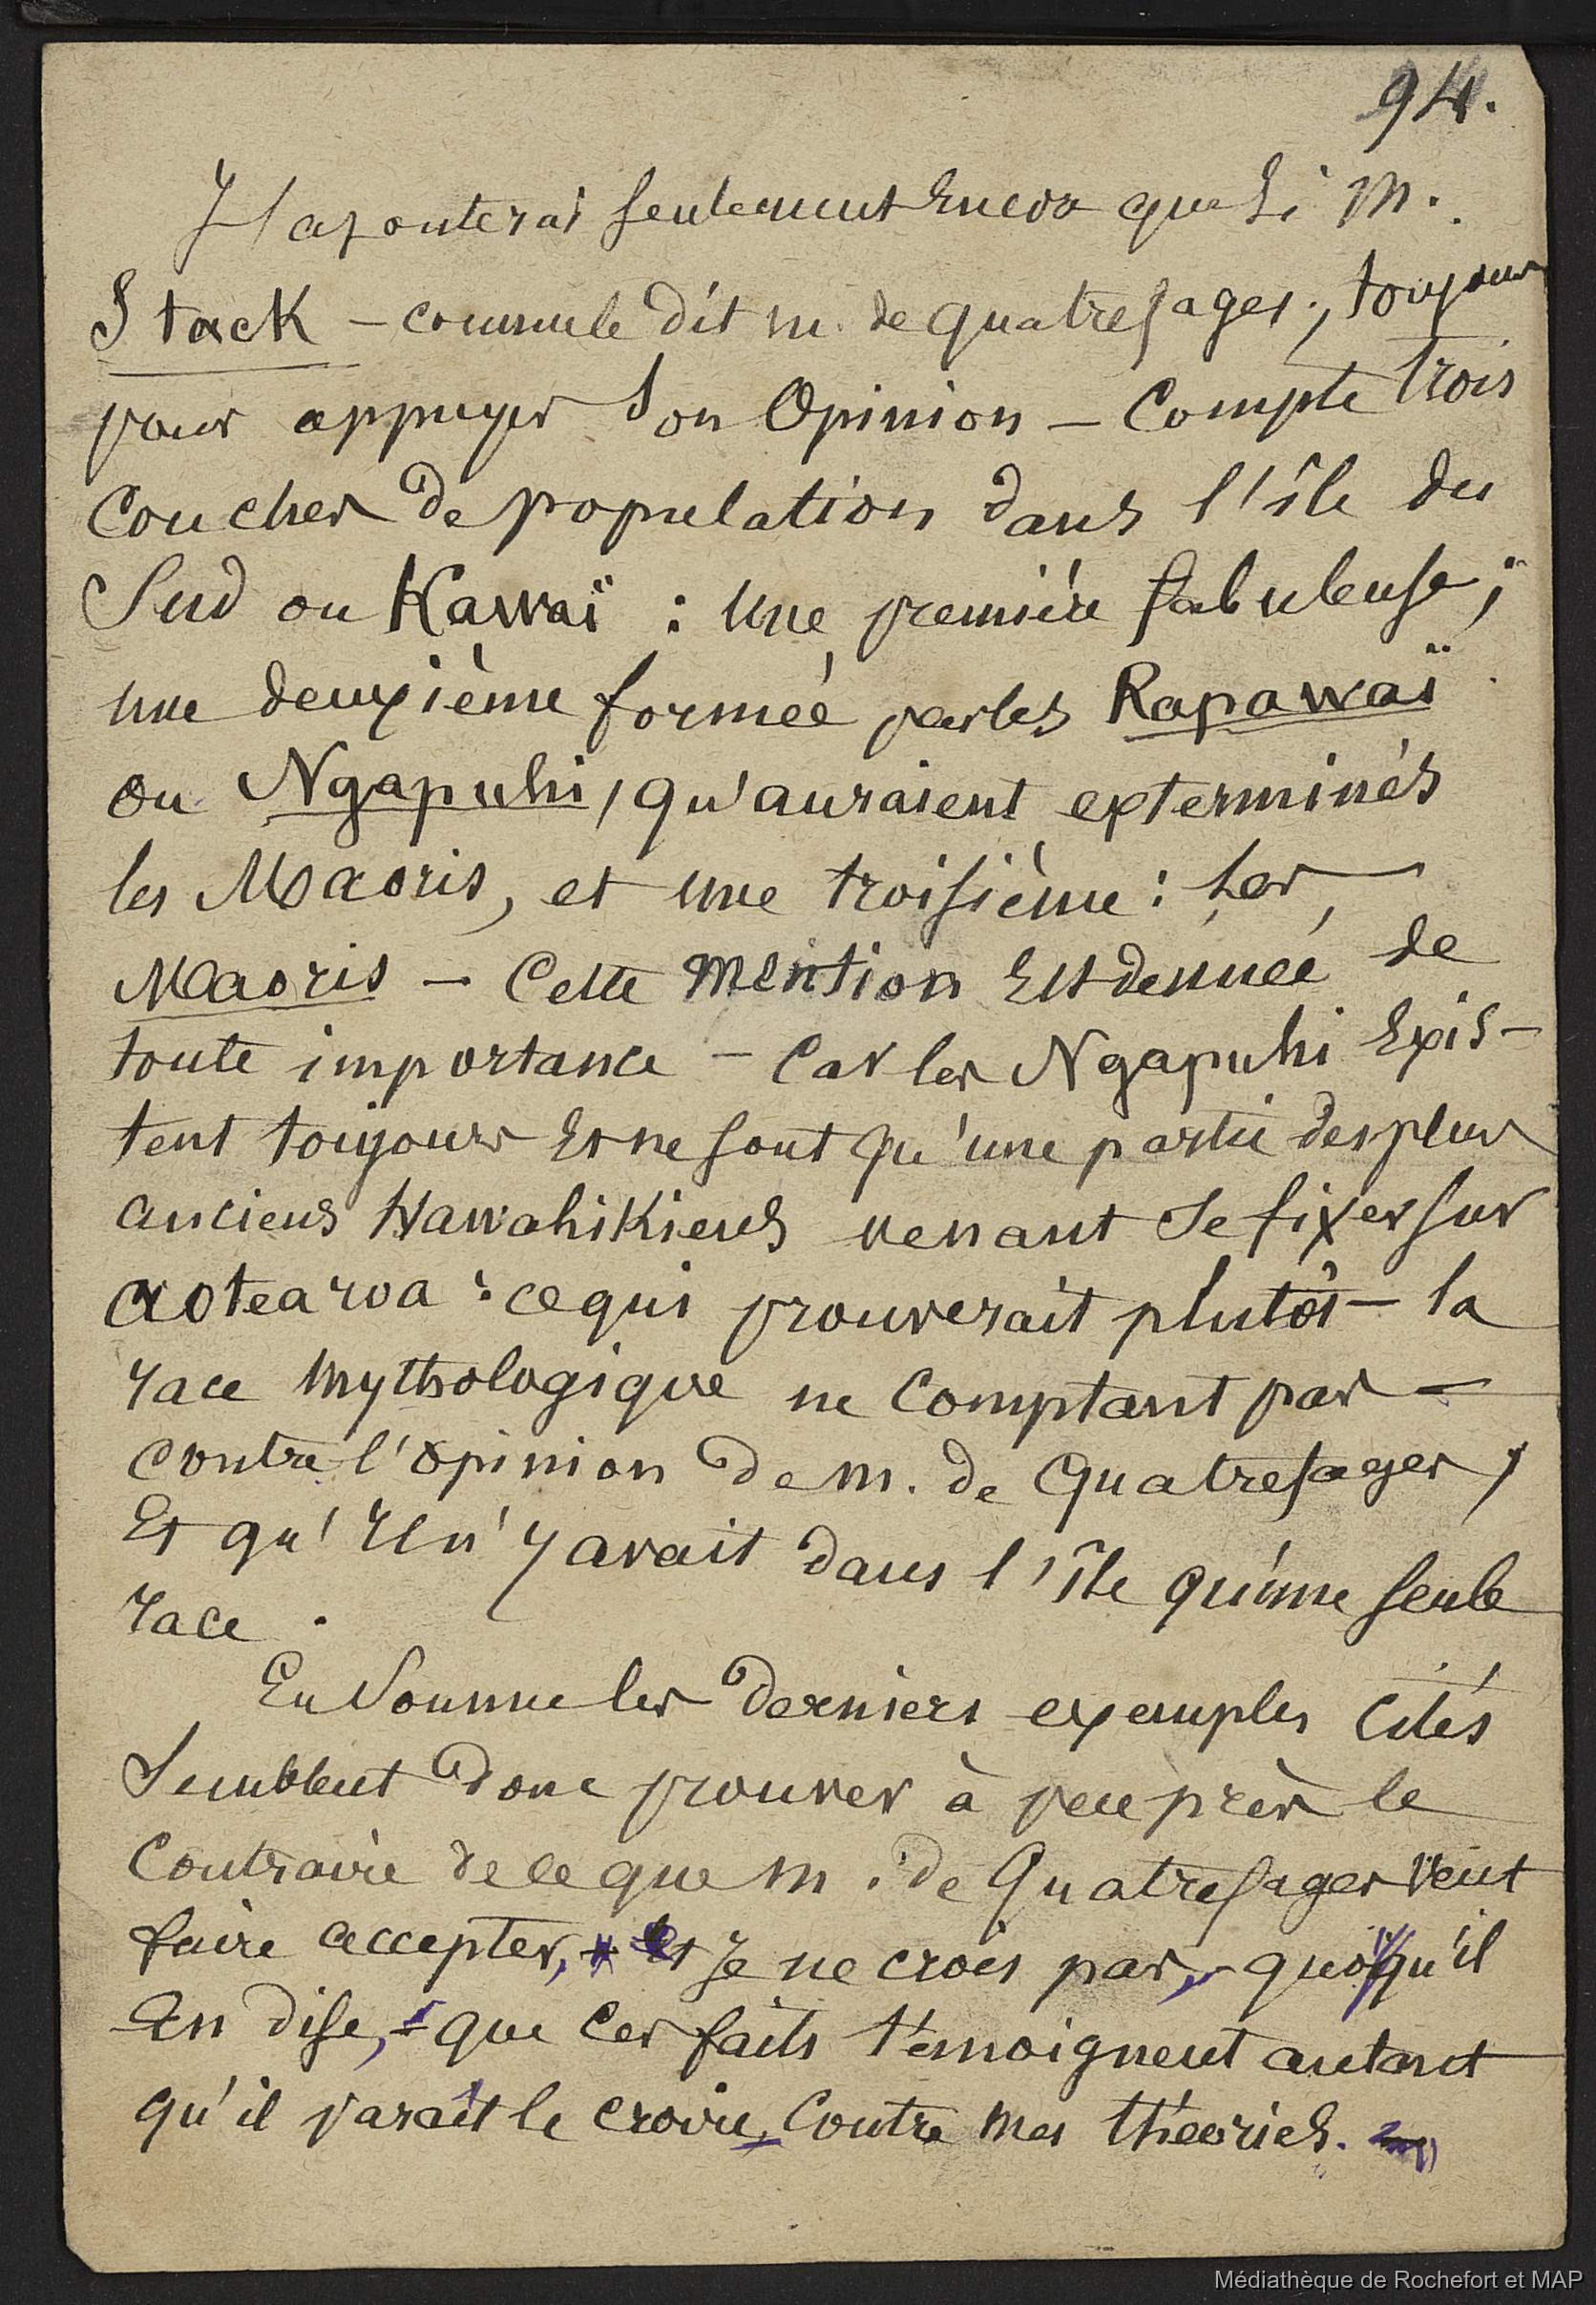 94.
J'ajouterai seulement encore que si M.
Stack – comme le dit M. de Quatrefages, toujours
pour appuyer son Opinion – Compte trois
Couches de population dans l'île du
Sud ou Kawaï : une première fabuleuse ;
une deuxième formée par les Rapawaï
ou Ngapuhi, qu'auraient exterminés
les Maoris, et une troisième : les
Maoris – Cette mention est dénuée de
toute importance – Car les Ngapuhi Exis-
tent toujours et ne sont qu'une partie des plus
anciens Hawahikiens venant se fixer sur
aotearoa : ce qui prouverait plutôt – la
race mythologique ne comptant pas –
contre l'opinion de M. de Quatrefages,
Et qu'il n'y avait dans l'île qu'une seule
race.
En Somme les derniers exemples cités
Semblent donc prouver à peu près le
Contraire de ce que M. de Quatrefages veut
faire accepter, et Je ne crois pas, quoiqu'il
en dise, que ces faits témoignent autant
qu'il paraît le croire, Contre mes théories.
Médiathèque de Rochefort et MAP